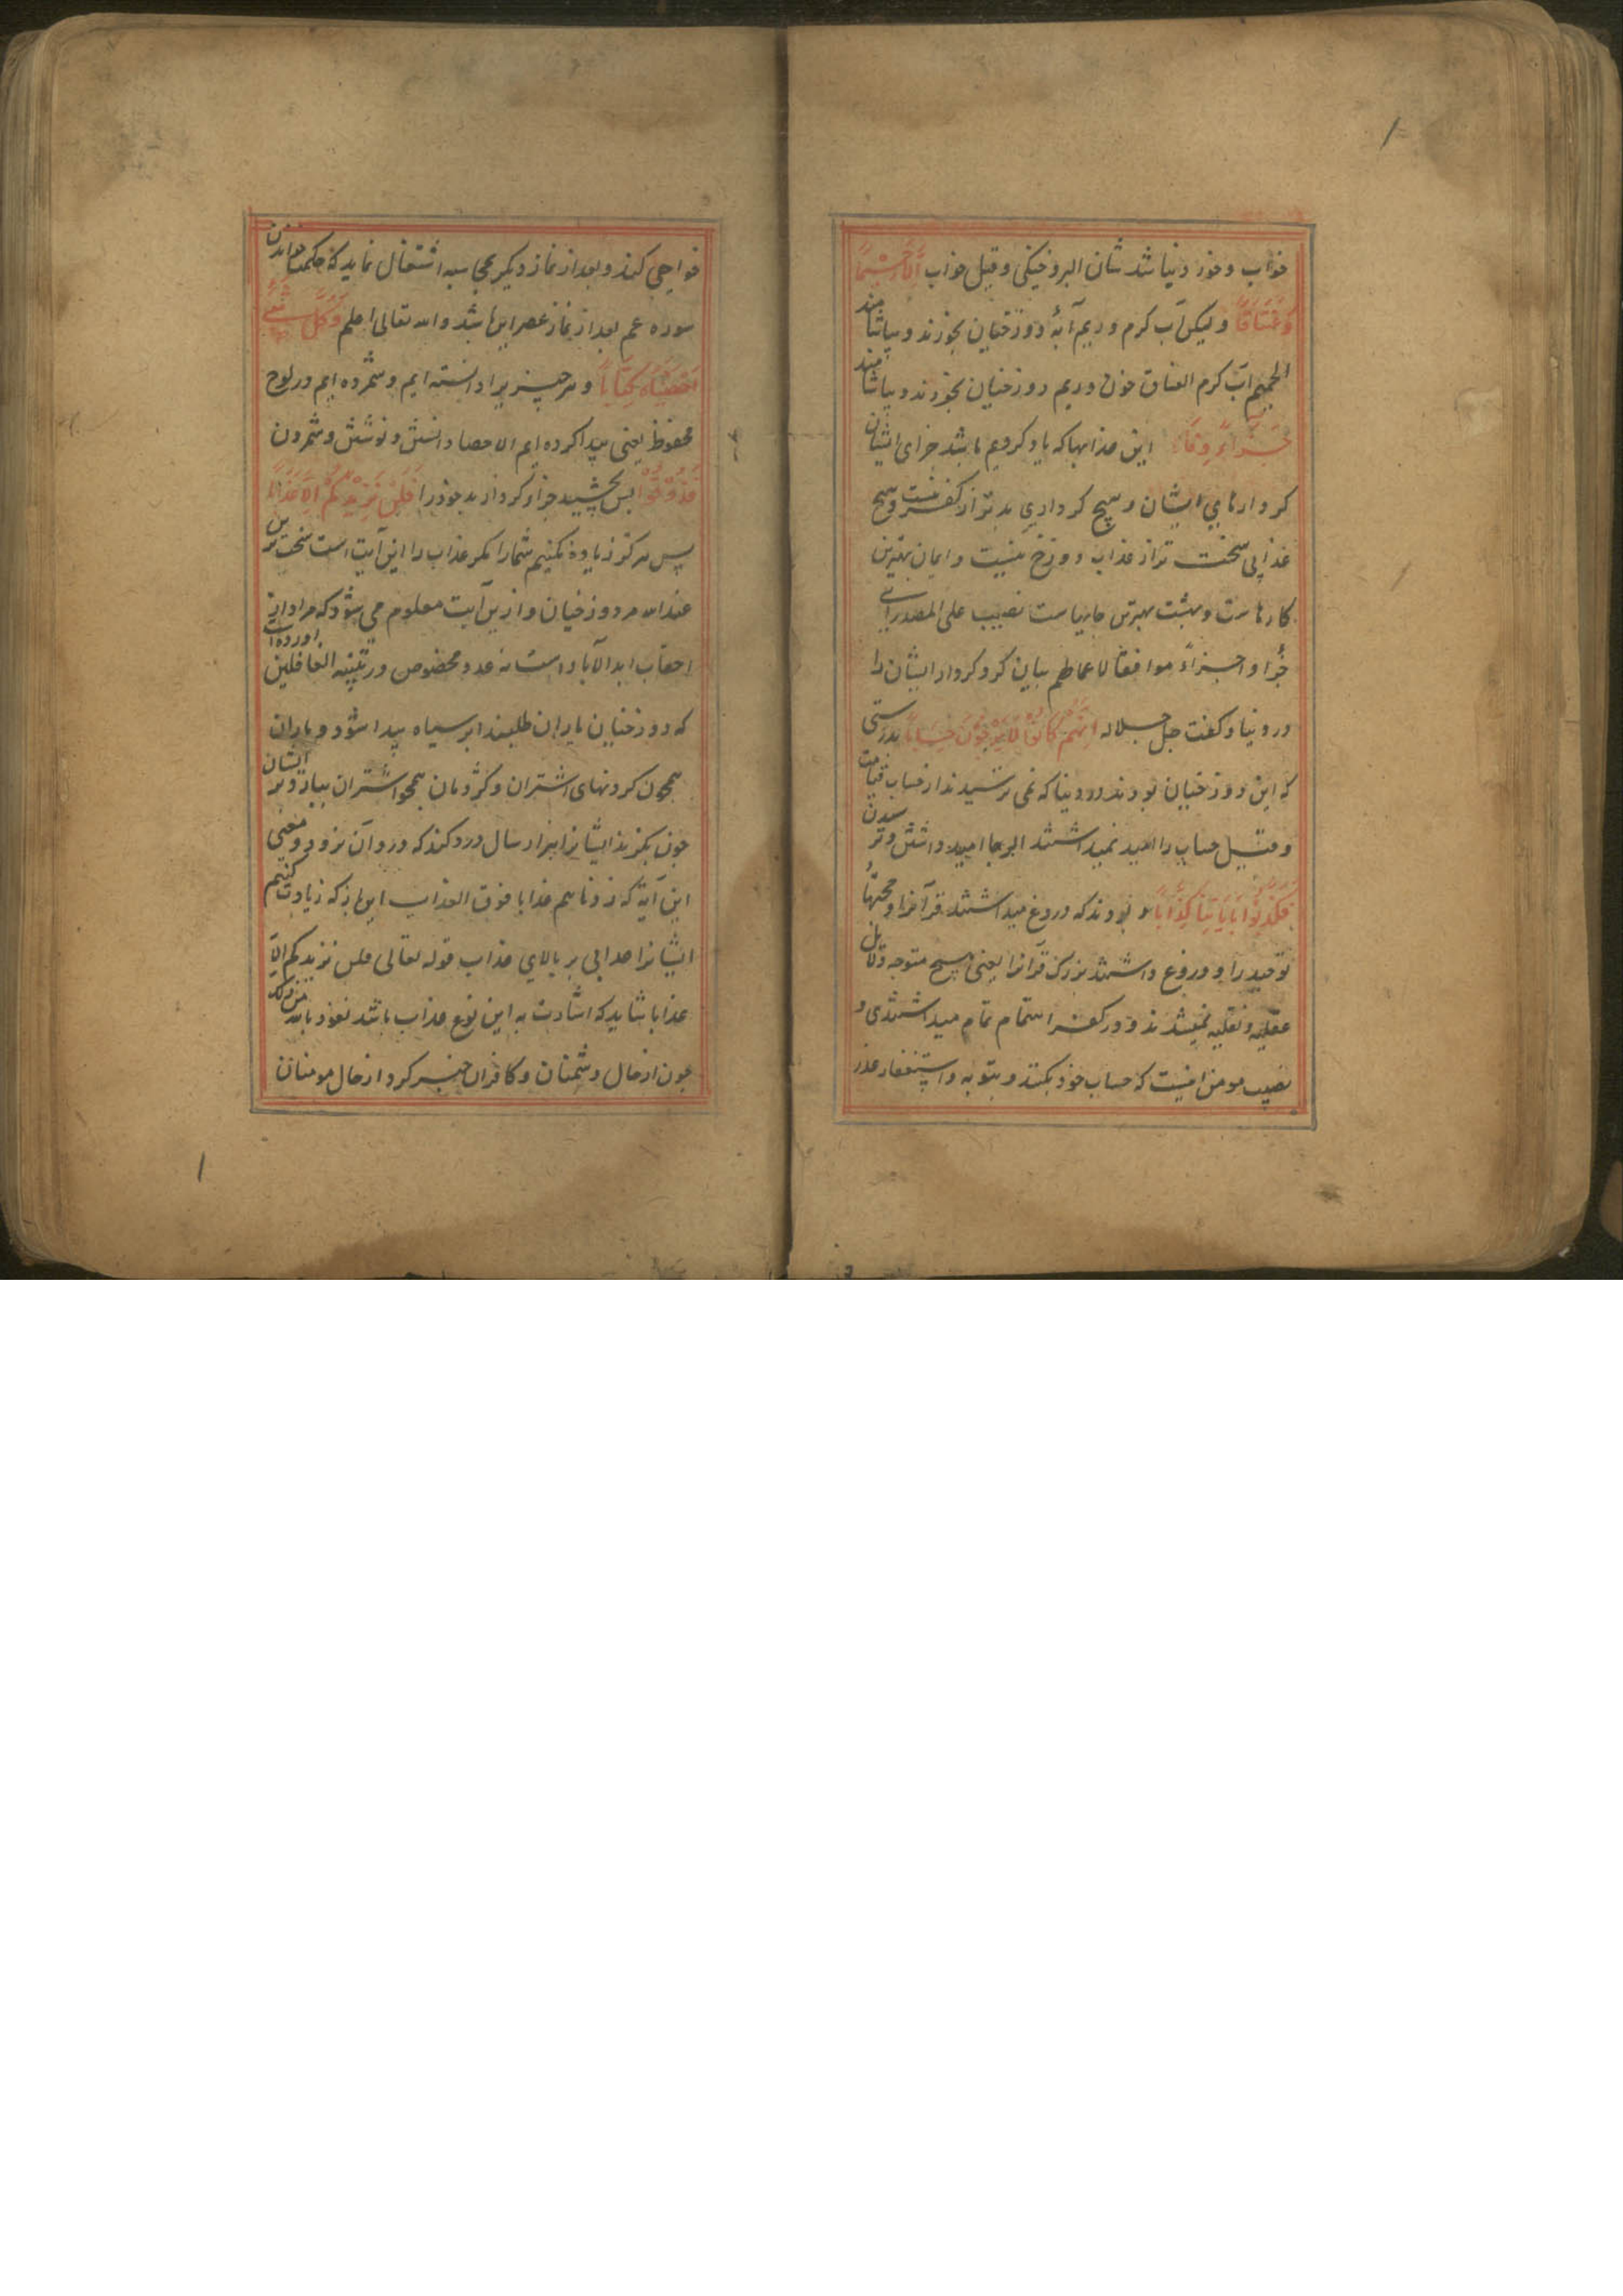 خواب و خور و نباشد شان البرد خنکی و قیل خواب اِلَّا حَمِيمًا
وَغَسَّاقًا و لیکن آب گرم و ریم آبهٔ دوزخیان بخورند و بیاشامند
الحمیم آب گرم الغساق خون و ریم دوزخیان بخورند و بیاشامند
جَزَاءً وِفَاقًا این عذابها که یاد کردیم باشد جزای ایشان
کردارهای ایشان و هیچ کرداری بدتر از کفر نیست و هیچ
عذابی سخت تر از عذاب دوزخ نیست و ایمان بهترین
کارهاست و بهشت بهترین جایهاست نصیب علی المصدر ای
جُزوا جزاءً موافقا لاعمالهم بیان کرد کردار ایشان را
در دنیا و گفت جل جلاله اِنَّهُمْ كَانُوا لَا يَرْجُونَ حِسَابًا بدرستی
که این دوزخیان بودند در دنیا که نمی ترسیدند از حساب قیامت
و قیل حساب را امید نمیداشتند الرجا امید داشتن و ترسیدن
وَكَذَّبُوا بِآيَاتِنَا كِذَّابًا و بودند که دروغ میداشتند قرآنرا و حجتهاء
توحید را و دروغ داشتند بزرگ قرآنرا یعنی هیچ متوجه دلایل
عقلیه و نقلیه نمیشدند و در کفر اهتمام تمام میداشتندی و
نصیب مومن اینست که حساب خود بکند و بتوبه و استغفار عذر
خواهی کند و بعد از نماز دیگر محاسبه اشتغال نماید که حکمت خواندن
سوره عم بعد از نماز عصر این باشد والله تعالی اعلم وَكُلَّ شَيْءٍ
أَحْصَيْنَاهُ كِتَابًا و هر چیز یرا دانسته ایم و شمرده ایم در لوح
محفوظ یعنی پیدا کرده ایم الاحصا دانستن و نوشتن و شمردن
فَذُوقُوا پس بچشید جزاء کردار بد خود را فَلَنْ نَزِيدَكُمْ اِلَّا عَذَابًا
پس هرگز زیاده نکنیم شما را مگر عذاب را این آیت است سخت ترین
عند الله مر دوزخیان و ازین آیت معلوم می شود که مراد از
احقاب ابد الآباد است نه عدد مخصوص و در تنبیه الغافلین آورده است
که دوزخیان باران طلبند ابر سیاه پیدا شود و باران
همچون گردنهای اشتران و کژدمان همچو اشتران ببارد و بر ایشان
چون بگزند ایشانرا هزار سال درد کند که درد آن نرود و معنی
این آیة که زدناهم عذابا فوق العذاب این بود که زیادت کنیم
ایشانرا عذابی بر بالای عذاب قوله تعالی فلن نزیدکم الا
عذابا شاید که اشارت به این نوع عذاب باشد نعوذ بالله من ذلک
چون از حال دشمنان و کافران خبر کرد از حال مومنان